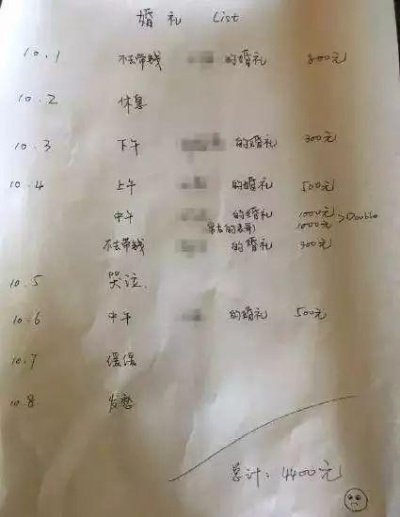 婚礼 List
10.1 不去带钱 的婚礼 800元
10.2 休息
10.3 下午 的婚礼 300元
10.4 上午 的婚礼 500元
中午 的婚礼 1000元 >Double
的表哥) 1000元
不去带钱 的婚礼 300元
10.5 哭泣
10.6 中午 的婚礼 500元
10.7 缓缓
10.8 发愁
总计: 4400元